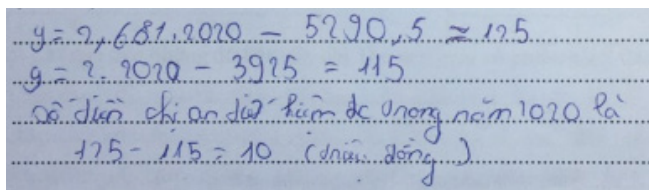 y = 2,681.2020 - 5290,5 ≈ 125
y = 2.2020 - 3925 = 115
Số tiền chị an tiết kiệm đc trong năm 2020 là
125 - 115 = 10 (triệu đồng)